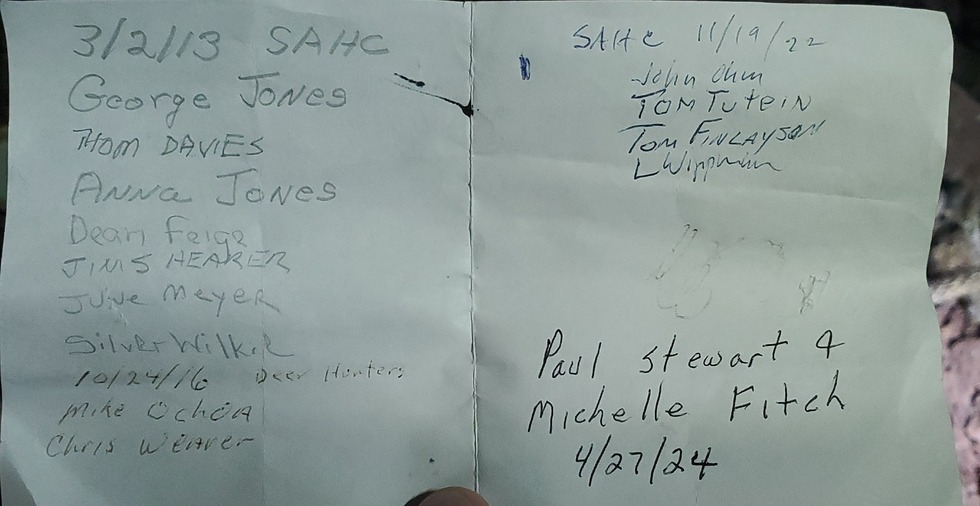 3/2/13 SAHC
George Jones
THOM DAVIES
Anna Jones
Dean Feige
JIM SHEARER
June Meyer
Silver Wilkie
10/24/16 Deer Hunters
Mike Ochoa
Chris Weaver
SAHC 11/19/22
John Ohm
TOM TUTEIN
TOM FINLAYSON
L
Paul Stewart &
Michelle Fitch
4/27/24